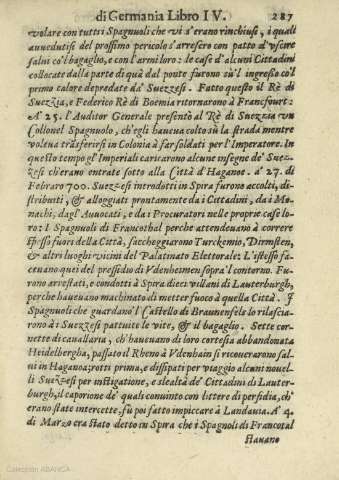 di Germania Libro IV. 287
volare con tutti i Spagnuoli che vi s'erano rinchiusi, i quali
avuedutisi del prossimo pericolo s'arresero con patto d'vscire
salui co'l bagaglio, e con l'armi loro: le case d'alcuni Cittadini
collocate dalla parte di quà dal ponte furono sù l'ingresso co'l
primo calore depredate da' Suezzesi. Fatto questo il Rè di
Suezzia, e Federico Rè di Boemia ritornarono à Francfourt:
A' 25. l'Auditor Generale presentò al Rè di Suezzia vn
Collonel Spagnuolo, ch'egli haueua colto sù la strada mentre
voleua trasferirsi in Colonia à far soldati per l'Imperatore. In
questo tempo gl'Imperiali caricarono alcune insegne de' Suez-
zesi ch'erano entrate sotto alla Città d'Haganoe. a' 27. di
Febraro 700. Suezzesi introdotti in Spira furono accolti, di-
stribuiti, & alloggiati prontamente da i Cittadini, da i Mo-
nachi, dagl'Auuocati, e da i Procuratori nelle proprie case lo-
ro: I Spagnuoli di Francothal perche attendeuano à correre
spesso fuori della Città, saccheggiarono Turckemio, Dirmsten,
& altri luoghi vicini del Palatinato Elettorale: L'istesso fa-
ceuano quei del pressidio di Vdenheimen sopra'l contorno. Fu-
rono arrestati, e condotti à Spira dieci villani di Lauterburgh,
perche haueuano machinato di metter fuoco à quella Città. I
Spagnuoli che guardano'l Castello di Braunenfels lo rilascia-
rono à i Suezzesi pattuite le vite, & il bagaglio. Sette cor-
nette di cauallaria, ch'haueuano di loro cortesia abbandonata
Heidelbergha, passato il Rheno à Vdenhain si ricouerarono sal-
ui in Haganoa; rotti prima, e dissipati per viaggio alcuni nouel-
li Suezzesi per instigatione, e slealtà de' Cittadini di Lauter-
burgh, il caporione de' quali conuinto con littere di perfidia, ch'
erano state intercette, fù poi fatto impiccare à Landauia. A' 4.
di Marzo era stato detto in Spira che i Spagnoli di Francotal
stauano
Colección ABANCA